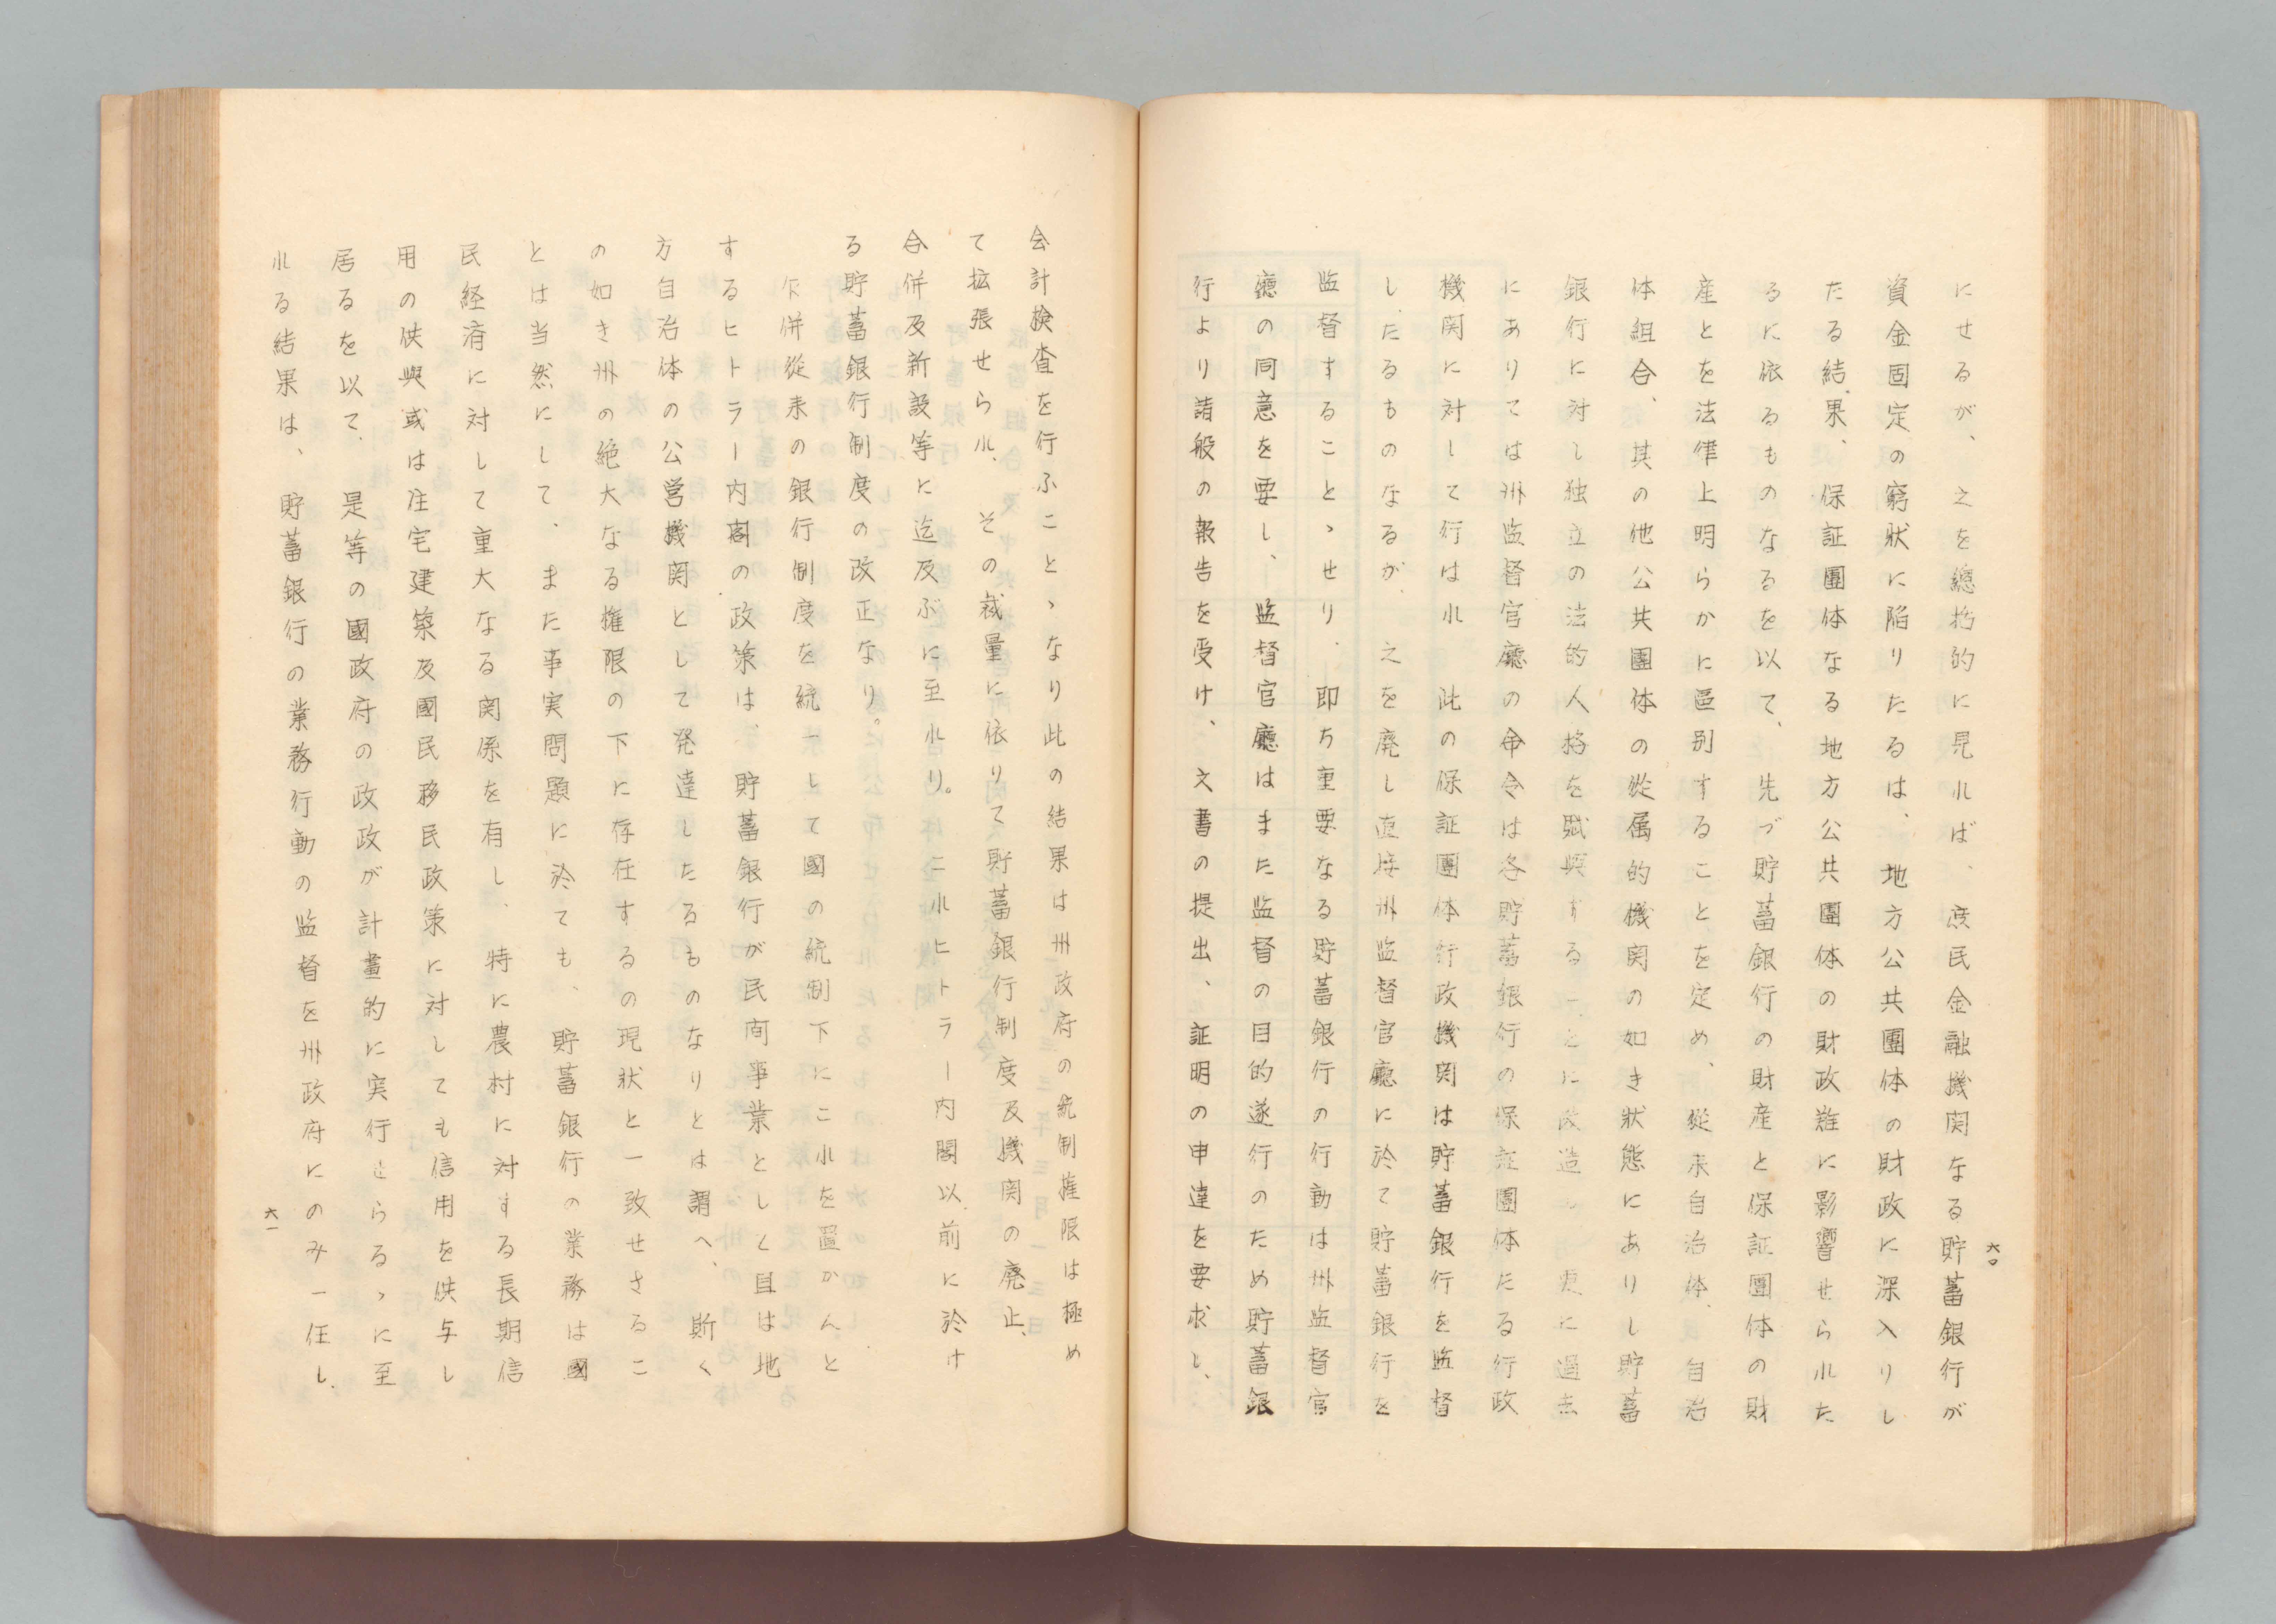 六〇
にせるが、之を總括的に見れば、庶民金融機関なる貯蓄銀行が
資金固定の窮狀に陥りたるは、地方公共團体の財政に深入りし
たる結果、保証團体なる地方公共團体の財政難に影響せられた
るに依るものなるを以て、先づ貯蓄銀行の財産と保証團体の財
産とを法律上明らかに區別することを定め、從来自治体、自治
体組合、其の他公共團体の從属的機関の如き狀態にありし貯蓄
銀行に対し独立の法的人格を賦與することに改造し、更に過去
にありては州監督官廳の命令は各貯蓄銀行の保証團体たる行政
機関に対して行はれ此の保証團体行政機関は貯蓄銀行を監督
したるものなるが、之を廃し直接州監督官廳に於て貯蓄銀行を
監督することゝせり、即ち重要なる貯蓄銀行の行動は州監督官
廳の同意を要し、監督官廳はまた監督の目的遂行のため貯蓄銀
行より諸般の報告を受け、文書の提出、証明の申達を要求し、
会計検査を行ふことゝなり此の結果は州政府の統制権限は極め
て拡張せられ、その裁量に依りて貯蓄銀行制度及機関の廃止、
合併及新設等に迄及ぶに至れり。これヒトラー内閣以前に於け
る貯蓄銀行制度の改正なり。
尓併從来の銀行制度を統一して國の統制下にこれを置かんと
するヒトラー内閣の政策は、貯蓄銀行が民間事業として且は地
方自治体の公営機関として発達したるものなりとは謂へ、斯く
の如き州の絶大なる権限の下に存在するの現狀と一致せさるこ
とは当然にして、また事実問題に於ても、貯蓄銀行の業務は國
民経済に対して重大なる関係を有し、特に農村に対する長期信
用の供與或は住宅建築及國民移民政策に対しても信用を供与し
居るを以て、是等の國政府の政政が計畫的に実行せらるゝに至
れる結果は、貯蓄銀行の業務行動の監督を州政府にのみ一任し、
六一